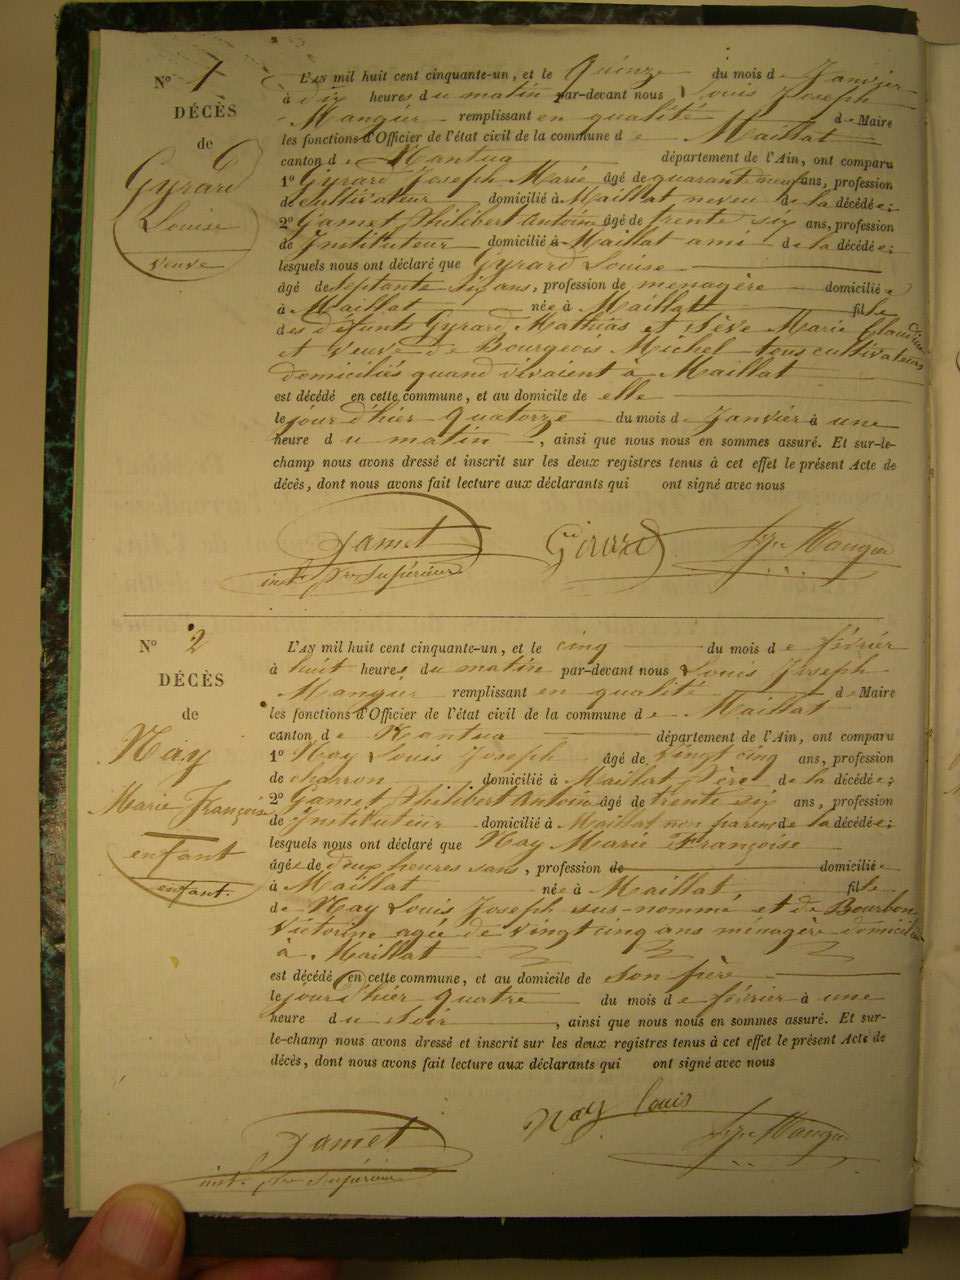 N° 1
DÉCÈS
de
Gyrard
Louise
veuve
L'AN mil huit cent cinquante-un, et le Quinze du mois de Janvier
à dix heures du matin par-devant nous Louis Joseph
Mangier remplissant en qualité de Maire
les fonctions d'Officier de l'état civil de la commune de Maillat
canton de Nantua département de l'Ain, ont comparu
1° Gyrard Joseph Marie âgé de quarante neuf ans, profession
de cultivateur domicilié à Maillat neveu de la décédée;
2° Gamet Philibert Antoine âgé de trente six ans, profession
de Instituteur domicilié à Maillat ami de la décédée;
lesquels nous ont déclaré que Gyrard Louise
âgé de septante six ans, profession de menagère domiciliée
à Maillat née à Maillat fille
des défunts Gyrard Mathias et Sève Marie Claudine
et veuve de Bourgeois Michel tous cultivateurs
domiciliés quand vivaient à Maillat
est décédé en cette commune, et au domicile de elle
le jour d'hier quatorze du mois de Janvier à une
heure du matin, ainsi que nous nous en sommes assuré. Et sur-le-
champ nous avons dressé et inscrit sur les deux registres tenus à cet effet le présent Acte de
décès, dont nous avons fait lecture aux déclarants qui ont signé avec nous
Gamet Girard Mangier
inst. supérieur
N° 2
DÉCÈS
de
Nay
Marie Françoise
enfant
enfant.
L'AN mil huit cent cinquante-un, et le cinq du mois de février
à huit heures du matin par-devant nous Louis Joseph
Mangier remplissant en qualité de Maire
les fonctions d'Officier de l'état civil de la commune de Maillat
canton de Nantua département de l'Ain, ont comparu
1° Nay Louis Joseph âgé de vingt cinq ans, profession
de charron domicilié à Maillat père de la décédée;
2° Gamet Philibert Antoine âgé de trente six ans, profession
de Instituteur domicilié à Maillat non parent de la décédée;
lesquels nous ont déclaré que Nay Marie Françoise
âgée de deux heures sans, profession de domiciliée
à Maillat née à Maillat, fille
de Nay Louis Joseph sus-nommé et de Bourbon
Victorine agée de vingt cinq ans ménagère domiciliée
à Maillat
est décédé en cette commune, et au domicile de son père
le jour d'hier quatre du mois de février à une
heure du soir, ainsi que nous nous en sommes assuré. Et sur-
le-champ nous avons dressé et inscrit sur les deux registres tenus à cet effet le présent Acte de
décès, dont nous avons fait lecture aux déclarants qui ont signé avec nous
Gamet Nay Louis Mangier
inst. supérieur